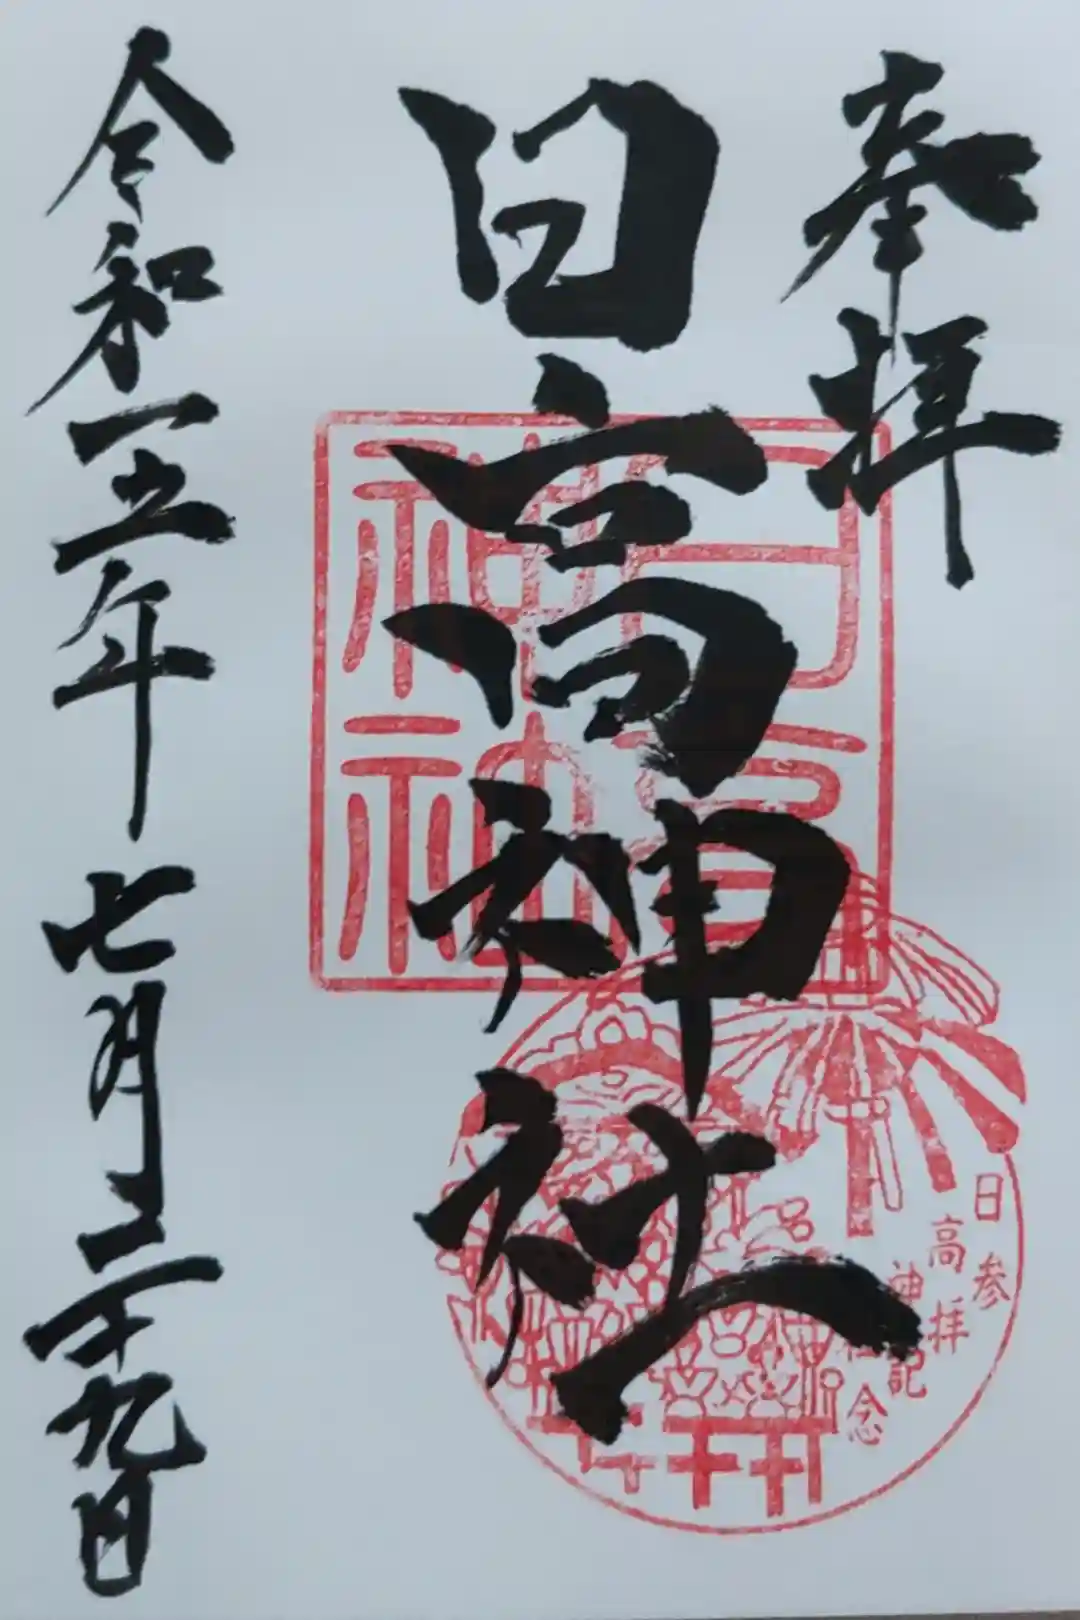 奉拝
日高神社
日高神社
日高神社
参拝記念
令和五年七月二十九日